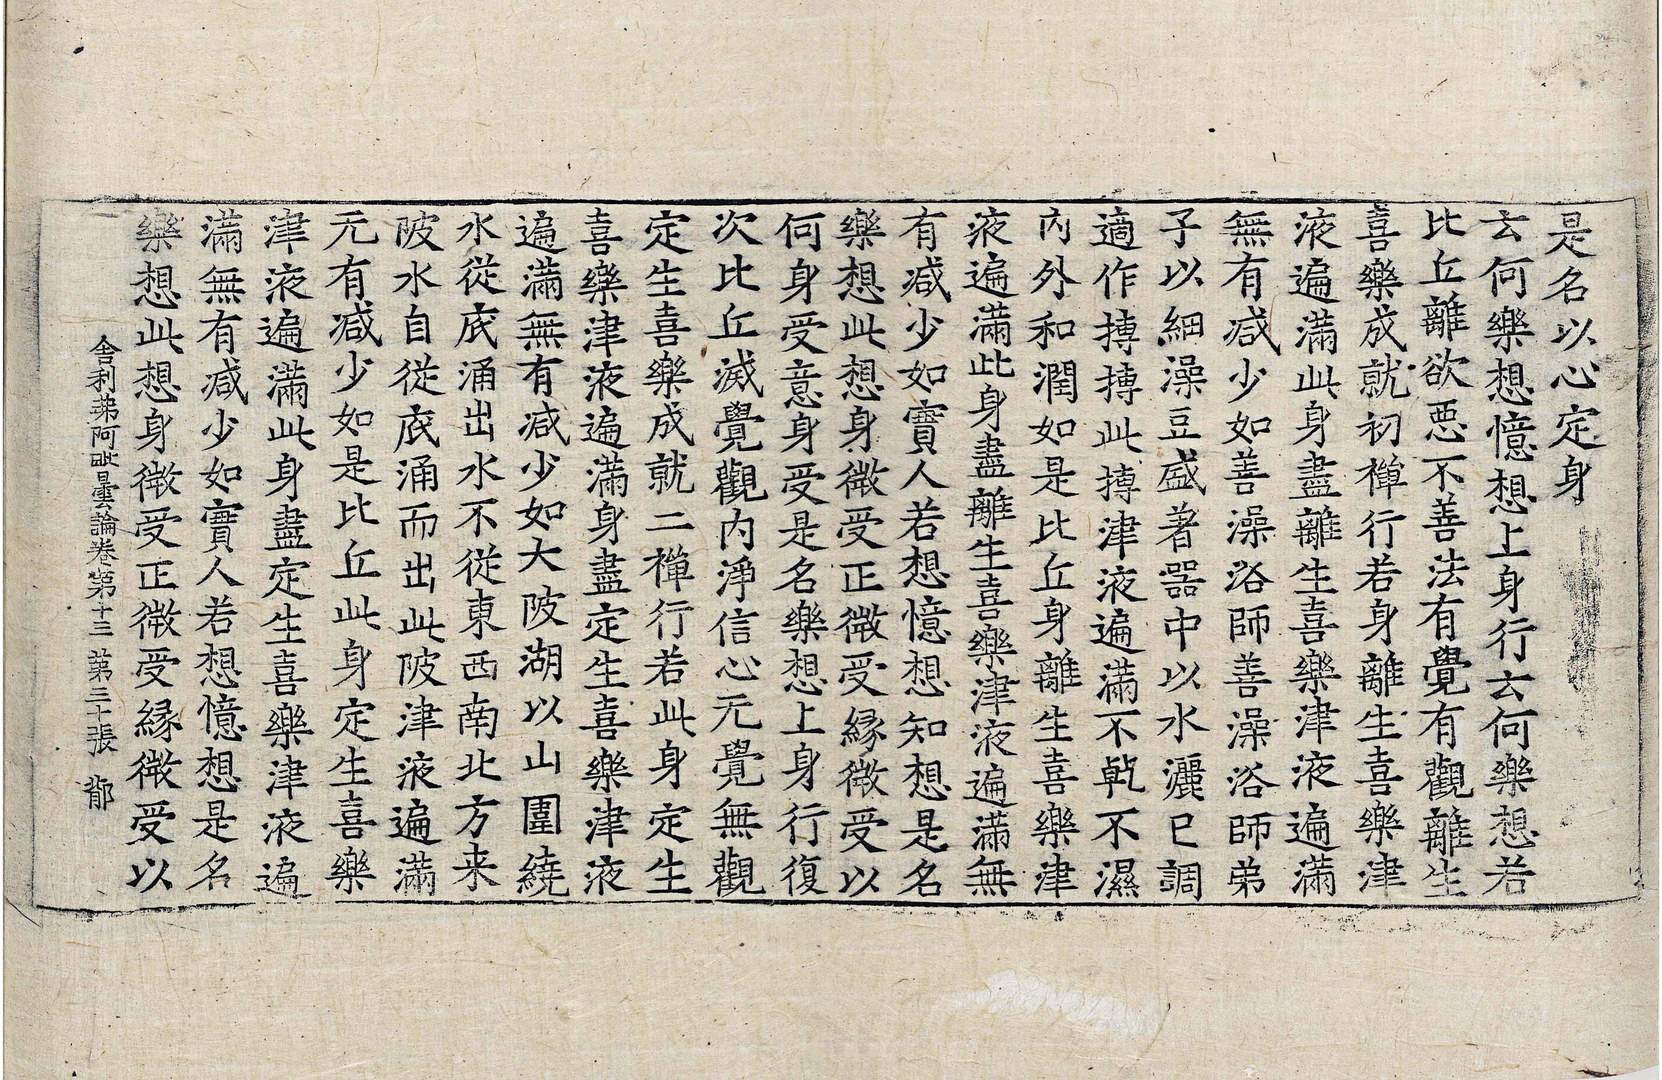 是名以心定身
云何樂想憶想上身行云何樂想若
比丘離欲惡不善法有覺有觀離生
喜樂成就初禪行若身離生喜樂津
液遍滿此身盡離生喜樂津液遍滿
無有减少如善澡浴師善澡浴師弟
子以細澡豆盛著器中以水灑已調
適作摶摶此摶津液遍滿不乹不濕
內外和潤如是比丘身離生喜樂津
液遍滿此身盡離生喜樂津液遍滿無
有减少如實人若想憶想知想是名
樂想此想身微受正微受緣微受以
何身受意身受是名樂想上身行復
次比丘滅覺觀內淨信心无覺無觀
定生喜樂成就二禪行若此身定生
喜樂津液遍滿身盡定生喜樂津液
遍滿無有减少如大陂湖以山圍繞
水從底涌出水不從東西南北方来
陂水自從底涌而出此陂津液遍滿
无有减少如是比丘此身定生喜樂
津液遍滿此身盡定生喜樂津液遍
滿無有减少如實人若想憶想是名
樂想此想身微受正微受緣微受以
舍利弗阿毗曇論卷第十三 第三十張